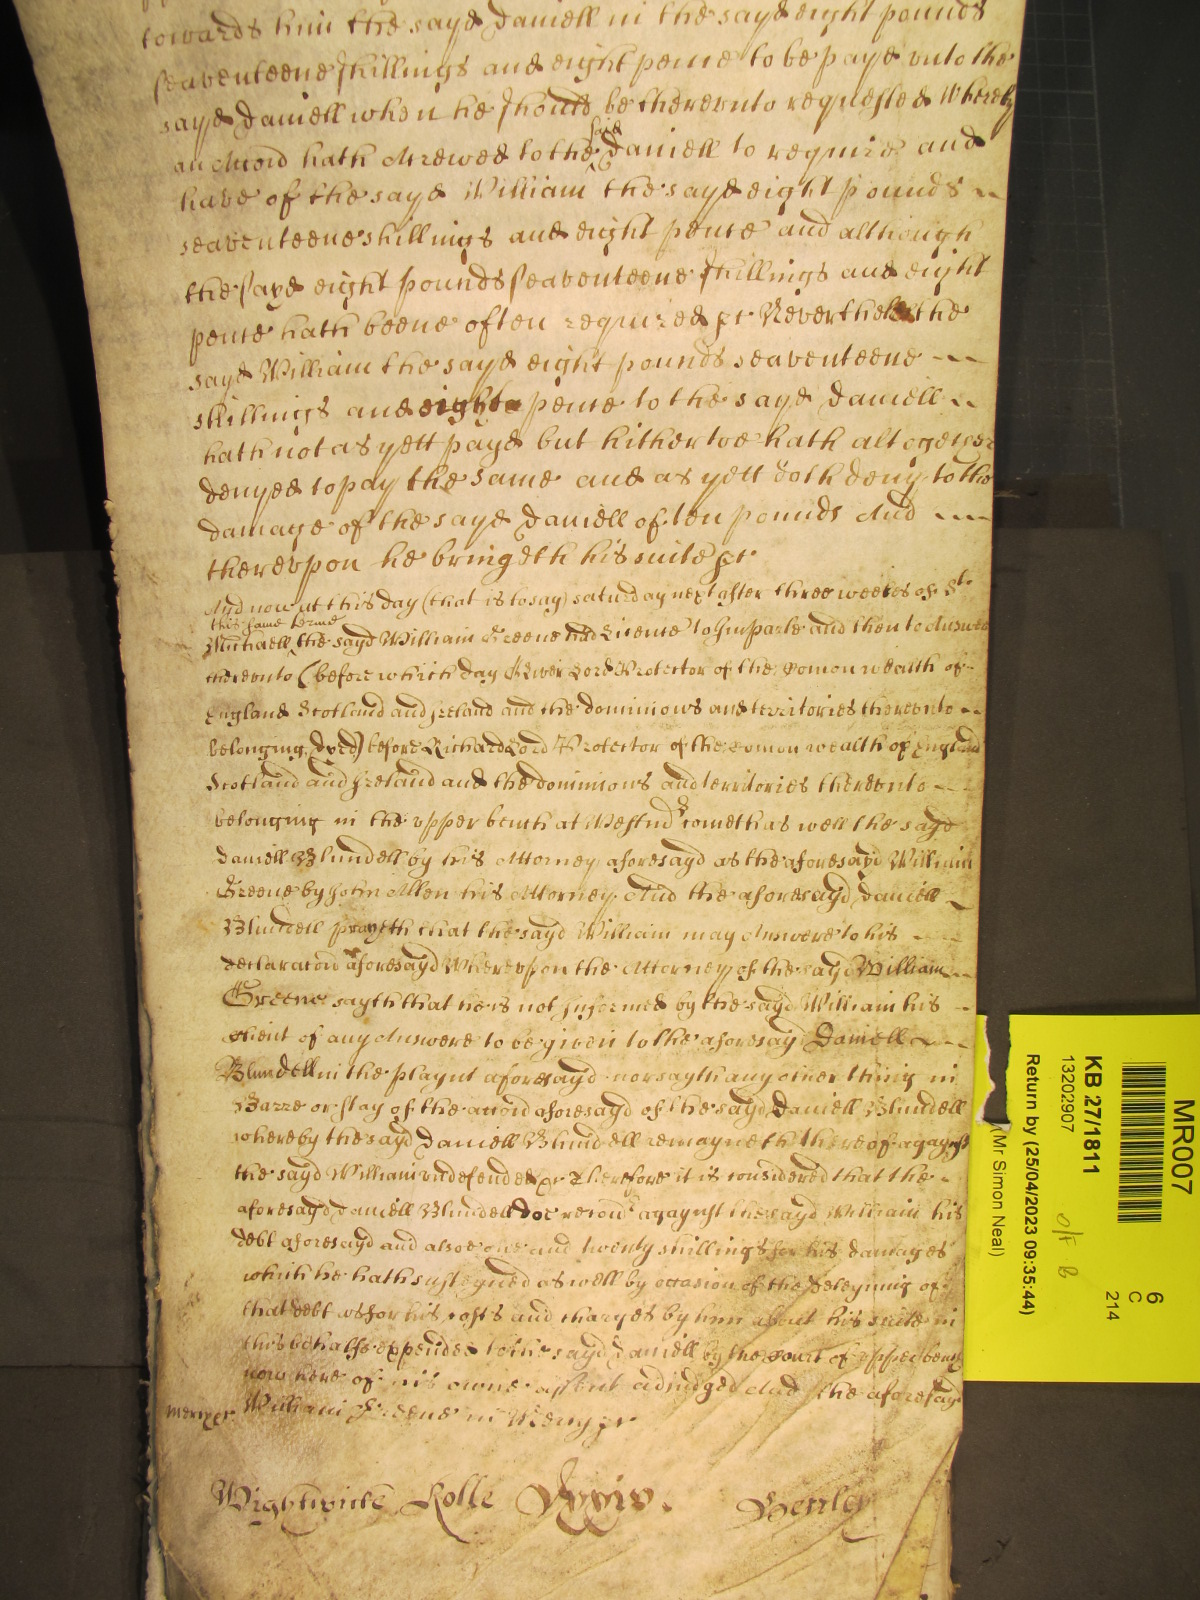 towards him the sayd Daniell in the sayd eight pounds
seaventeene shillings and eight pence to be payd vnto the
sayd Daniell when he should be therevnto requested Whereby
an Accion hath Accrewed to the said Daniell to require and
have of the sayd William the sayd eight pounds
seaventeene shillings and eight pence and although
the sayd eight pounds seaventeene shillings and eight
pence hath beene often required &c Neverthelesse the
sayd William the sayd eight pounds seaventeene
shillings and eighte pence to the sayd Daniell
hath not as yett payd but hithertoe hath altogether
denyed to pay the same and as yett doth deny to the
damage of the sayd Daniell of ten pounds And
therevpon he bringeth his suite &c
And now at this day (that is to say) saturday next after three weekes of St
this same terme
Michaell the sayd William Greene had Licence to Imparle and then to Answer
therevnto (before which day Oliver Lord Protector of the Comon wealth of
England Scotland and Ireland and the dominions and territories therevnto
belonging dyed) before Richard Lord Protector of the Comon wealth of England
Scotland and Ireland and the dominions and territories therevnto
belonging in the vpper bench at Westmr cometh as well the sayd
Daniell Blundell by his Attorney aforesayd as the aforesayd William
Greene by John Allen his Attorney And the aforesayd Daniell
Blundell prayeth that the sayd William may Answere to his
declaracion aforesayd Wherevpon the Attorney of the sayd William
Greene sayth that he is not Informed by the sayd William his
Client of any Answere to be given to the aforesayd Daniell
Blundell in the playnt aforesayd nor sayth any other thing in
Barre or stay of the accion aforesayd of the sayd Daniell Blundell
whereby the sayd Daniell Blundell remayneth thereof agaynst
the sayd William vndefended &c Therefore it is considered that the
aforesayd Daniell Blundell doe recover agaynst the sayd William his
debt aforesayd and alsoe one and twenty shillings for his damages
which he hath susteyned as well by occasion of the deteyning of
that debt as for his costs and charges by him about his suite in
this behalfe expended to the sayd Daniell by the Court of vpper bench
now here of his owne assent adiudged And the aforesayd
mercy &c William Greene in Mercy &c
Wightwicke Rolle
MR007
6
C
214
KB 27/1811
13202907
Return by (25/04/2023 09:35:44)
(Mr Simon Neal)